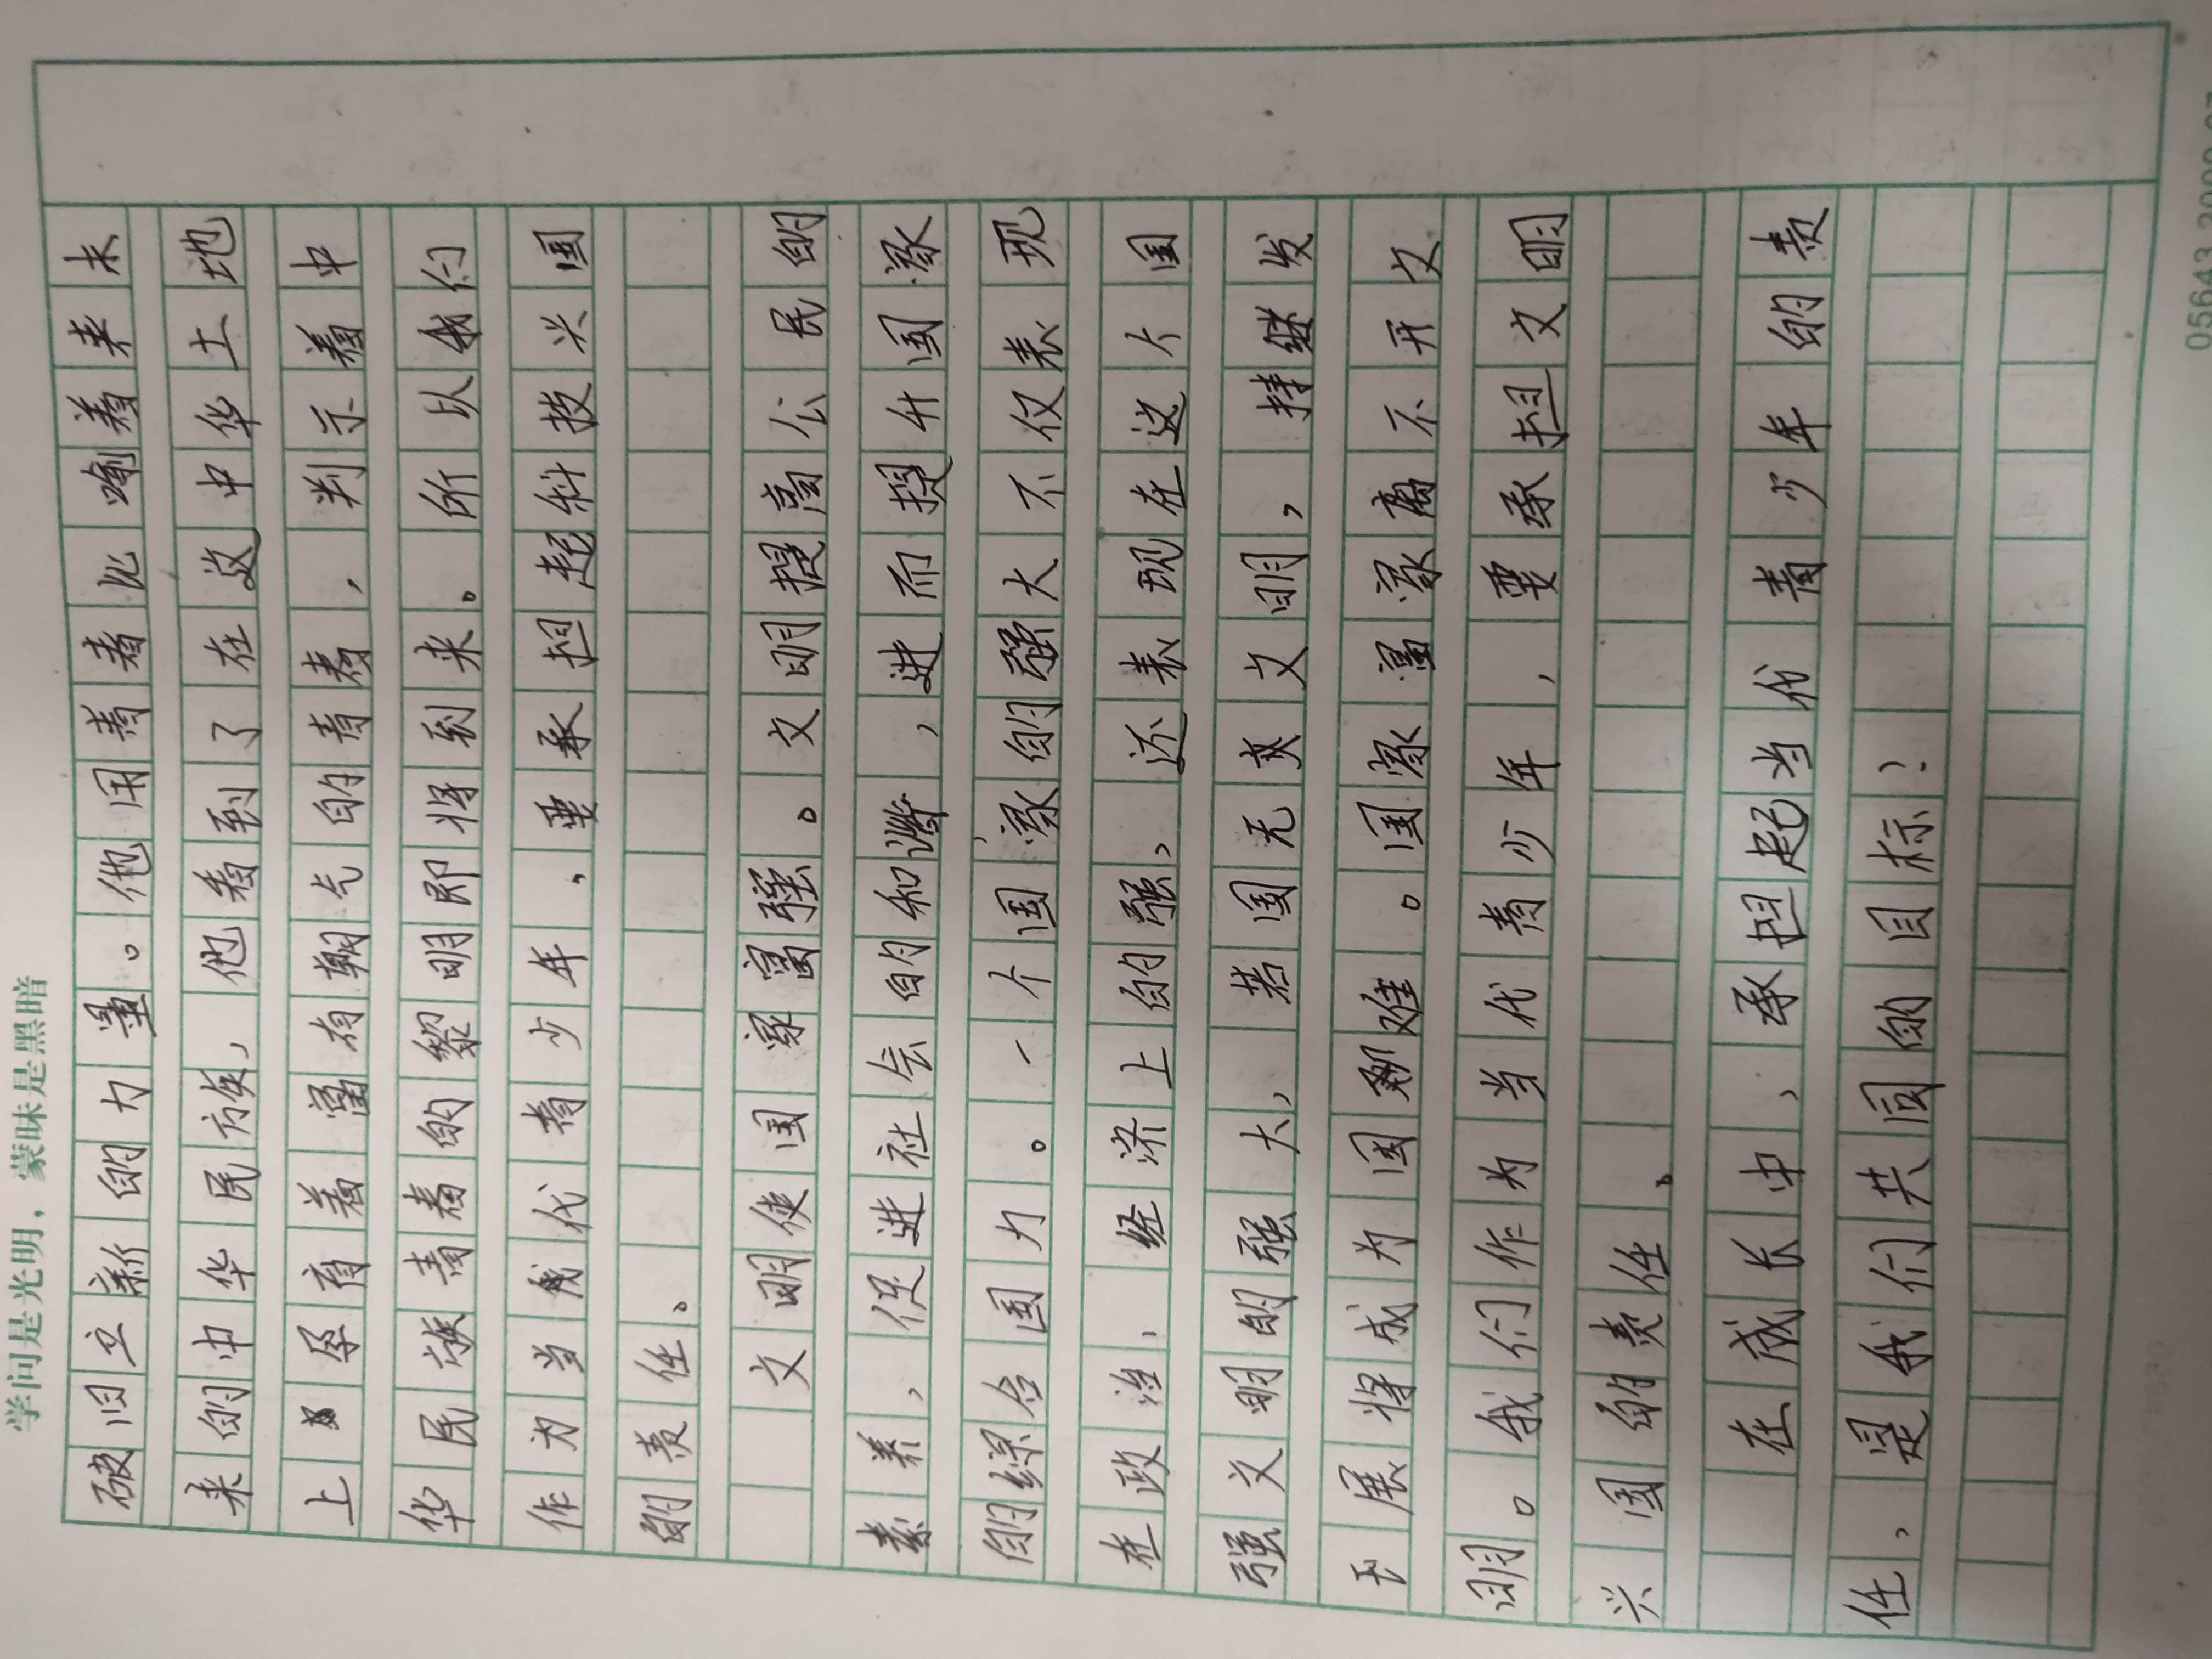 学问是光明，蒙昧是黑暗
破旧立新的力量。他用青春比喻着来未
来的中华民族，他看到了在这中华土地
上孕育着富有朝气的青春，判示着中
华民族青春的黎明即将到来。所以我们
作为当代青少年，要承担起科技兴国
的责任。
文明使国家富强。文明提高公民的
素养，促进社会的和谐，进而提升国家
的综合国力。一个国家的强大不仅表现
在政治、经济上的强，还表现在这个国
强文明的强大，若国无文明，持继发
展将成为国郡难。国家富家离不开文
明。我们作为当代青少年，要承担文明
兴国的责任。
在成长中，承担起当代青少年的责
任，是我们共同的目标？